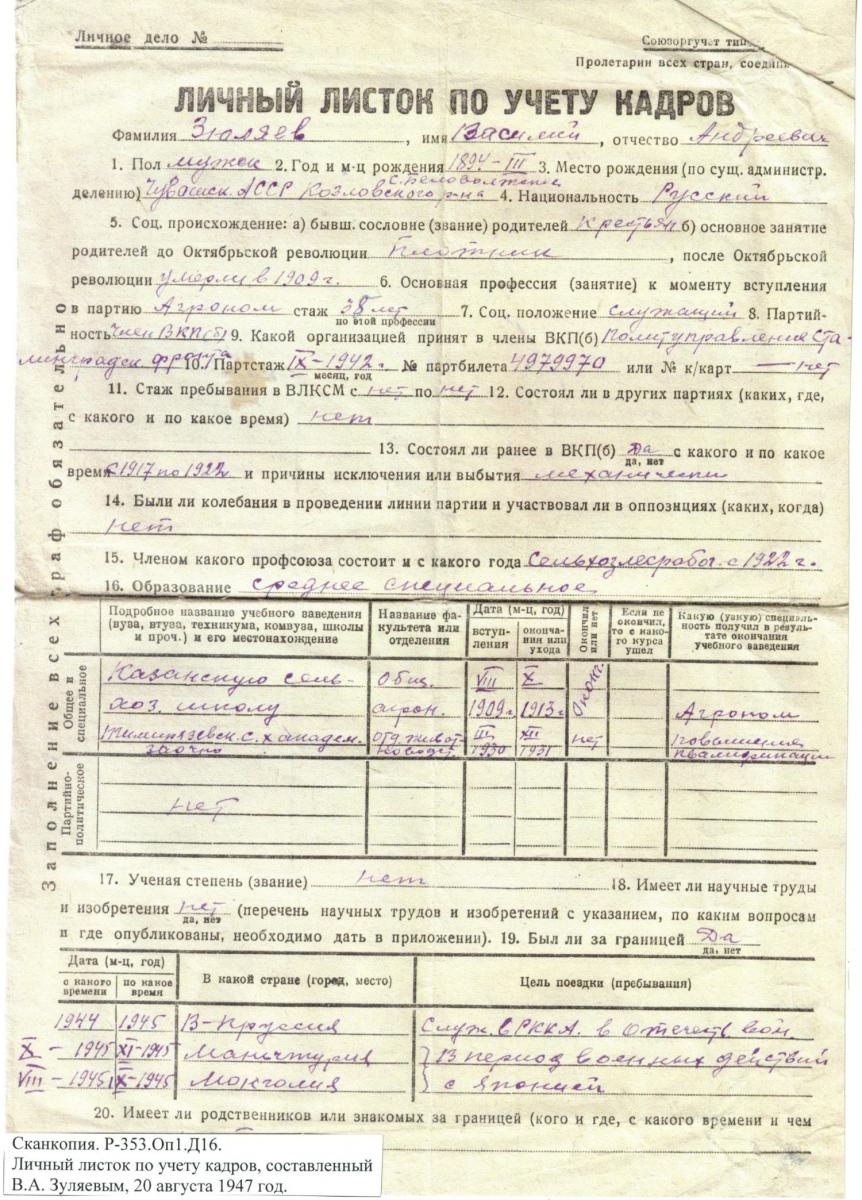 Личное дело №
Союзоргучет тип.
Пролетарии всех стран, соедин
ЛИЧНЫЙ ЛИСТОК ПО УЧЕТУ КАДРОВ
Фамилия Зюляев, имя Василий, отчество Андреевич
1. Пол мужск 2. Год и м-ц рождения 1894-III 3. Место рождения (по сущ. администр.
с. Беловолжское
делению) Чувашск. АССР Козловского р-на 4. Национальность Русский
5. Соц. происхождение: а) бывш. сословие (звание) родителей Крестьян б) основное занятие
родителей до Октябрьской революции Плотник, после Октябрьской
революции умерли в 1909 г. 6. Основная профессия (занятие) к моменту вступления
в партию Агроном стаж 38 лет 7. Соц. положение служащий 8. Партий-
по этой профессии
ность член ВКП(б) 9. Какой организацией принят в члены ВКП(б) Политуправления Ста-
линградск. фронта 10. Партстаж IX-1942 г. № партбилета 4979970 или № к/карт — нет
месяц, год
11. Стаж пребывания в ВЛКСМ с нет по нет 12. Состоял ли в других партиях (каких, где,
с какого и по какое время) нет
13. Состоял ли ранее в ВКП(б) Да с какого и по какое
да, нет
время с 1917 по 1922 и причины исключения или выбытия механически
14. Были ли колебания в проведении линии партии и участвовал ли в оппозициях (каких, когда)
нет
15. Членом какого профсоюза состоит и с какого года Сельхозлесрабог. с 1922 г.
16. Образование среднее специальное
Заполнение всех граф обязательно
Подробное название учебного заведения (вуза, втуза, техникума, комвуза, школы и проч.) и его местонахождение
Название факультета или отделения
Дата (м-ц, год)
вступления
окончания или ухода
Окончил или нет
Если не окончил, то с какого курса ушел
Какую (узкую) специальность получил в результате окончания учебного заведения
Общее и специальное
Казанскую сель- Общ. VIII X Оконч.
хоз. школу агрон. 1909 г 1913 г Агроном
Тимирязевск. с. х академ. отд. живот- III XII нет повышения
заочно новодст. 1930 1931 квалификации
Партийно-политическое
нет
17. Ученая степень (звание) нет 18. Имеет ли научные труды
и изобретения нет (перечень научных трудов и изобретений с указанием, по каким вопросам
да, нет
и где опубликованы, необходимо дать в приложении). 19. Был ли за границей Да
да, нет
Дата (м-ц, год)
с какого времени
по какое время
В какой стране (город, место)
Цель поездки (пребывания)
1944 1945 В-Пруссия Служ. в РККА. в Отечеств вой.
X - 1945 XI-1945 Маньчжурия } В период военных действий
VIII - 1945 X-1945 Монголия } с Японией
20. Имеет ли родственников или знакомых за границей (кого и где, с какого времени и чем
Сканкопия. Р-353.Оп1.Д16.
Личный листок по учету кадров, составленный
В.А. Зуляевым, 20 августа 1947 год.